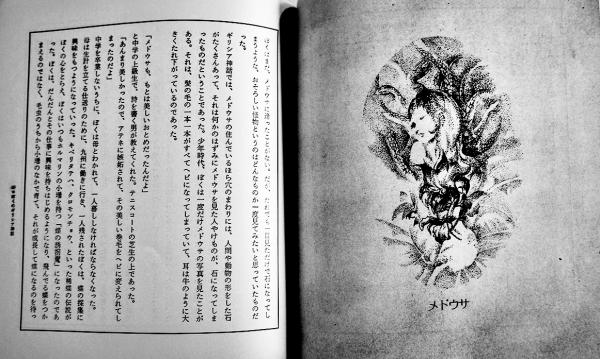 メドウサ
ぼくはまだ、メドウサに逢ったことがない。だが、たれでも一目見ただけで石になってし
まうような、おそろしい怪物というのはどんなものか一度見てみたいと思っていたものだ
った。
ギリシア神話では、メドウサの住んでいるほら穴のまわりには、人間や動物の形をした石
がたくさんあって、それは何かのはずみにメドウサを見た人やけものが、石になってしま
ったものだということであった。少年時代、ぼくは一度だけメドウサの写真を見たことが
ある。それは、髪の毛の一本一本がすべてヘビになってしまっていて、耳は牛のように大
きくたれ下がっているのであった。
「メドウサも、もとは美しいおとめだったんだよ」
と中学の上級生で、詩を書く男が教えてくれた。テニスコートの芝生の上であった。
「あんまり美しかったので、アテネに嫉妬されて、その美しい巻毛をヘビに変えられてし
まったのだよ」
中学を卒業しないうちに、ぼくは母とわかれて、一人暮ししなければならなくなった。
母は生計を立てる仕送りのために、九州に働きに行き、一人残されたぼくは、蝶の採集に
興味をもつようになっていった。キベリタテハ、クロモンチョウ、といった稀蝶の伝説が
ぼくの心をとらえ、ぼくはいつもホルマリンの小壜を持つ「蝶の誘拐魔」になったのであ
った。ぼくは、だんだんとその仕事に興味を持ちはじめるようになり、飛んでる蝶をつか
まえるのではなく、毛虫のうちから小壜のなかで育て、それが成長して蝶になるのを待っ